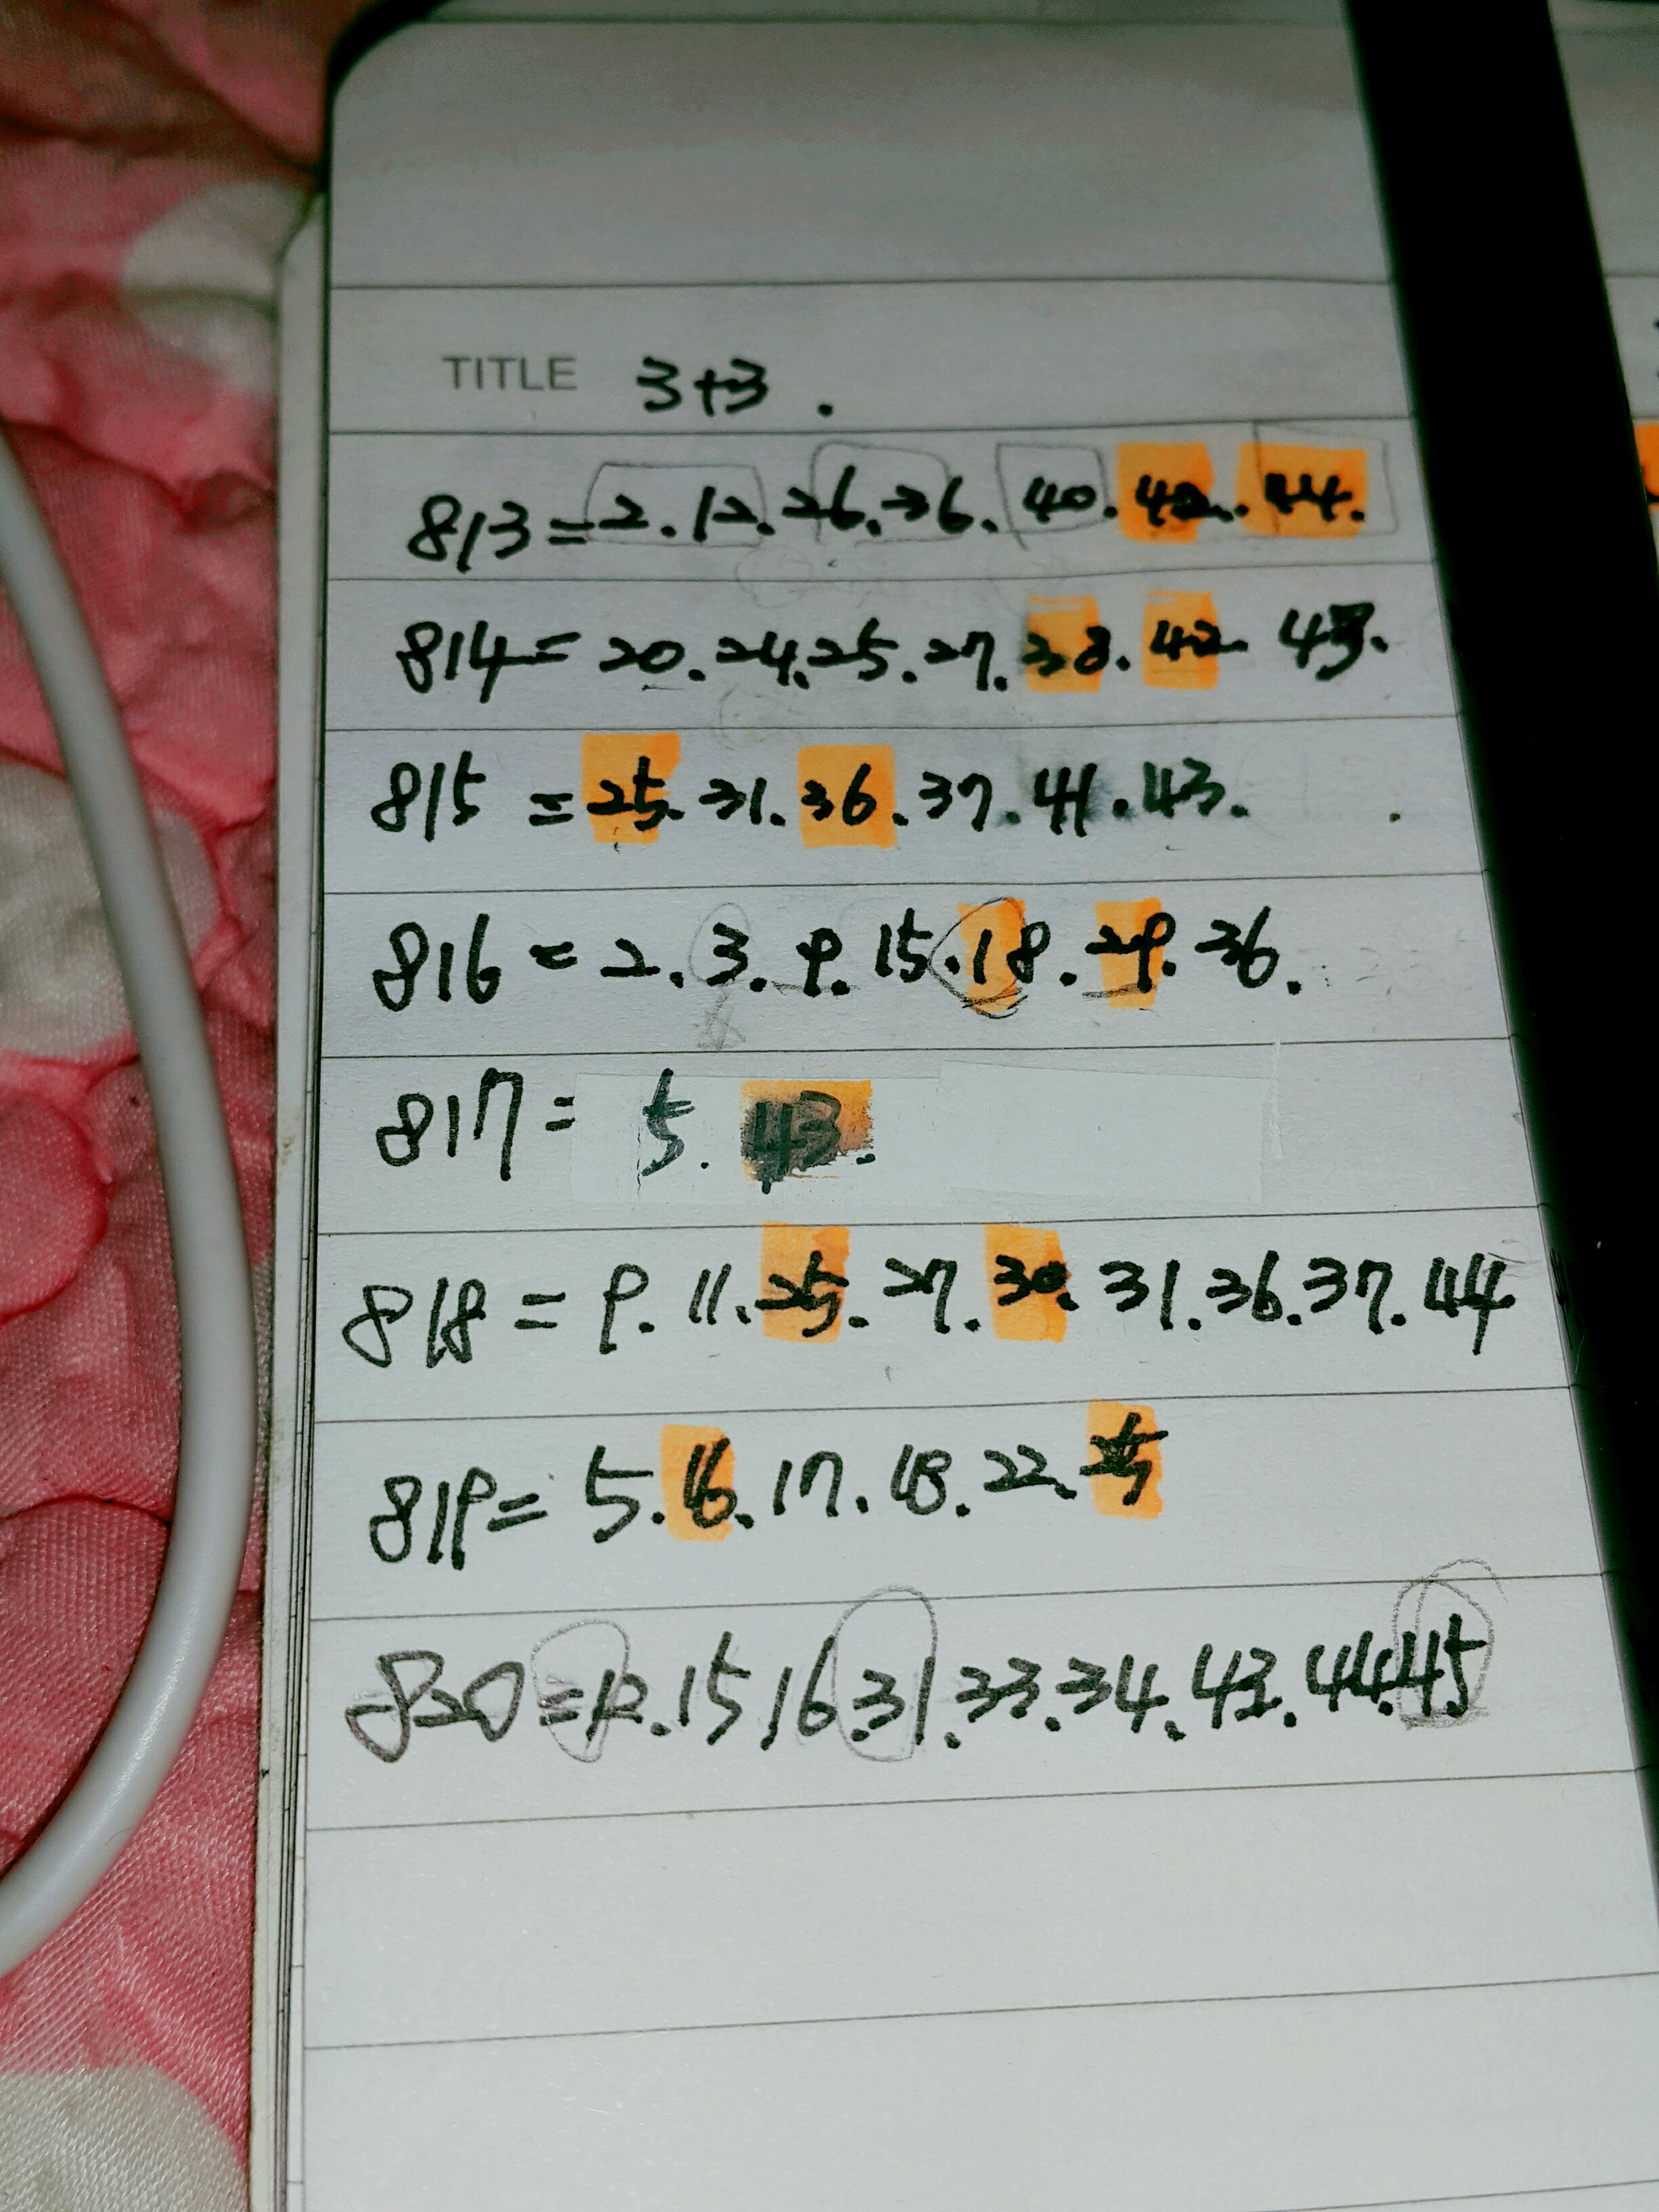 TITLE 3+3.
813=2.12.26.36.40.42.44.
814=20.24.25.27.38.42.43.
815=25.31.36.37.41.43.
816=2.3.9.15.18.29.36.
817=5.43.
818=9.11.25.27.30.31.36.37.44
819=5.16.17.18.22.25
820=12.15.16.31.33.34.43.44.45